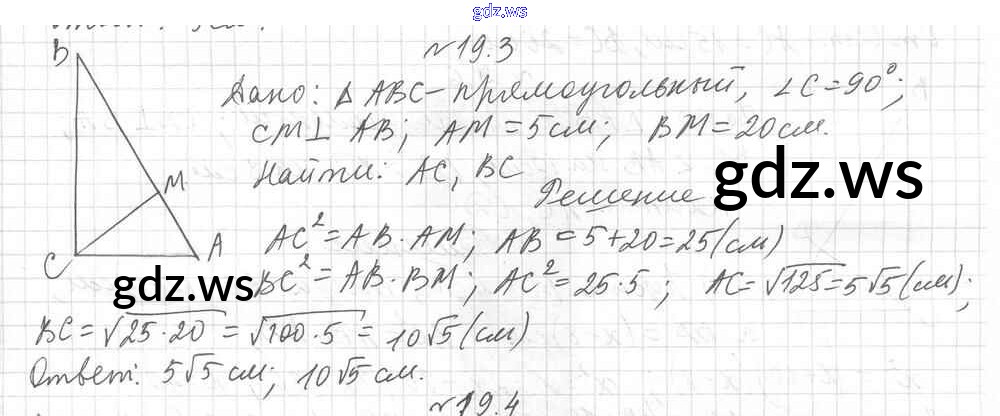 gdz.ws
№19.3
B
Дано: Δ ABC - прямоугольный, ∠C = 90°;
CM ⊥ AB; AM = 5 см; BM = 20 см.
Найти: AC, BC
gdz.ws
M
Решение
C A AC² = AB · AM; AB = 5 + 20 = 25 (см)
gdz.ws BC² = AB · BM; AC² = 25 · 5; AC = √125 = 5√5 (см);
BC = √25 · 20 = √100 · 5 = 10√5 (см)
Ответ: 5√5 см; 10√5 см.
№19.4